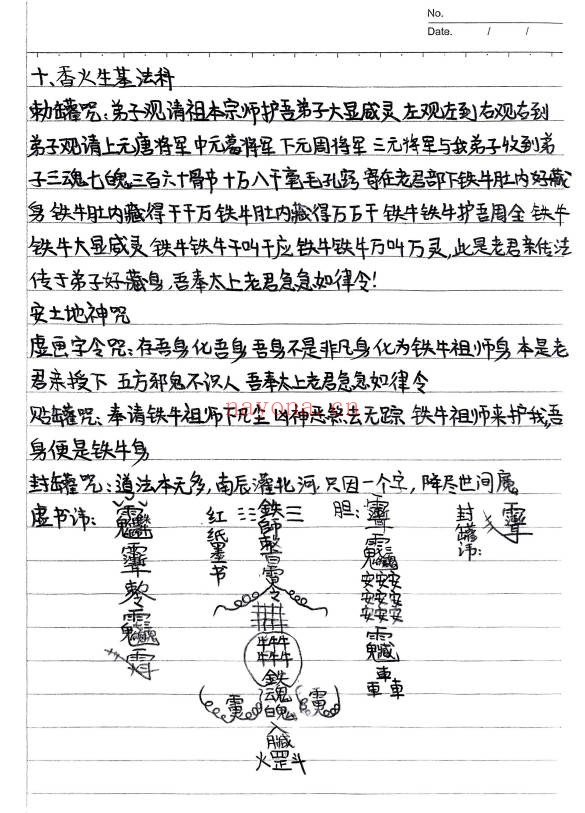 No.
Date. / /
十、香火生基法科
勅罐咒：弟子观请祖本宗师护吾弟子大显威灵 左观左到右观右到
弟子观请上元唐将军 中元葛将军 下元周将军 三元将军与我弟子收到弟
子三魂七魄三百六十骨节 十万八千毫毛孔窍 寄在老君部下铁牛肚内好藏
身 铁牛肚内藏得千千万 铁牛肚内藏得万万千 铁牛铁牛护吾周全 铁牛
铁牛大显威灵 铁牛铁牛千叫千应 铁牛铁牛万叫万灵，此是老君亲传法
传于弟子好藏身，吾奉太上老君急急如律令！
安土地神咒
虚画字令咒：存吾身化吾身 吾身不是非凡身 化为铁牛祖师身 本是老
君亲授下 五方邪鬼不识人 吾奉太上老君急急如律令
贴罐咒：奉请铁牛祖师下凡尘 凶神恶煞去无踪 铁牛祖师来护我，吾
身便是铁牛身
封罐咒：道法本元多，南辰灌北河 只因一个字，降尽世间魔
虚书讳：
红纸墨书
鉄師
令
牛牛牛
牛牛牛
鉄
魂
魄
入臟
火罡斗
胆：
安安安
安安安
安安安
車
車車
封罐讳：
nayona.cn